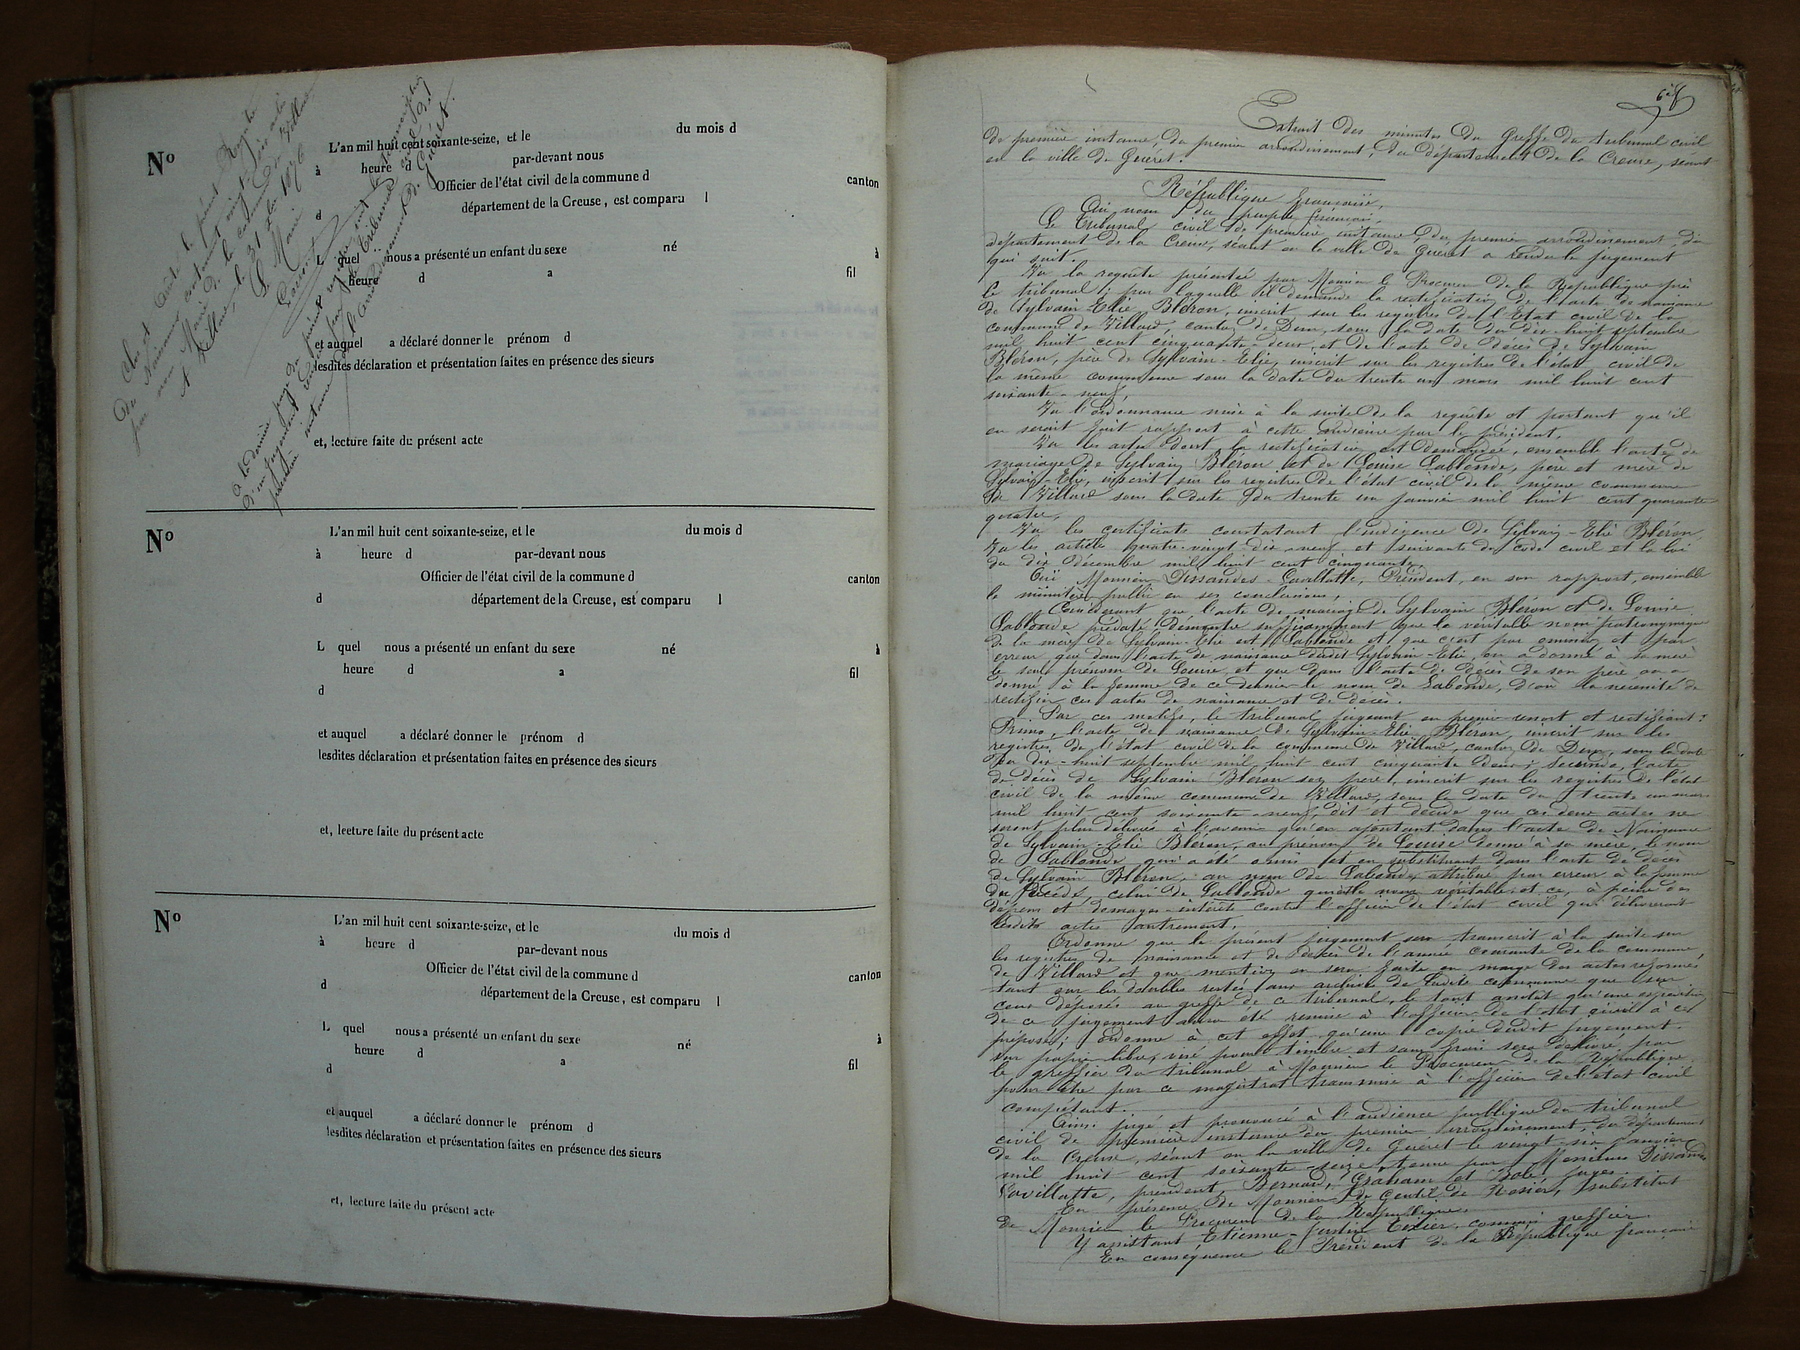 Clos et arrêté le présent Registre
de Naissances contenant vingt
par nous Maire de la commune de Villard
à Villard, le 31 Xbre 1876
Le Maire
à la dernière page du présent registre est transcription
d'un jugement rendu par le tribunal civil de
première instance de l'arrondissement de Guéret.
No
L'an mil huit cent soixante-seize, et le du mois d
à heure d par-devant nous
Officier de l'état civil de la commune d canton
d département de la Creuse, est comparu l
L quel nous a présenté un enfant du sexe né à
heure d a fil
et auquel a déclaré donner le prénom d
lesdites déclaration et présentation faites en présence des sieurs
et, lecture faite du présent acte
No
L'an mil huit cent soixante-seize, et le du mois d
à heure d par-devant nous
Officier de l'état civil de la commune d canton
d département de la Creuse, est comparu l
L quel nous a présenté un enfant du sexe né à
heure d a fil
d
et auquel a déclaré donner le prénom d
lesdites déclaration et présentation faites en présence des sieurs
et, lecture faite du présent acte
No
L'an mil huit cent soixante-seize, et le du mois d
à heure d par-devant nous
Officier de l'état civil de la commune d canton
d département de la Creuse, est comparu l
L quel nous a présenté un enfant du sexe né à
heure d a
d fil
et auquel a déclaré donner le prénom d
lesdites déclaration et présentation faites en présence des sieurs
et, lecture faite du présent acte
Extrait des minutes du Greffe du tribunal civil
de première instance, du premier arrondissement, du département de la Creuse, séant
en la ville de Guéret.
République française,
Au nom du peuple français,
Le Tribunal civil de première instance, du premier arrondissement, du
département de la Creuse, séant en la ville de Guéret a rendu le jugement
qui suit.
Vu la requête présentée par Monsieur le Procureur de la République près
le tribunal; par laquelle il demande la rectification de l'acte de naissance
de Sylvain-Elie Bléron, inscrit sur les registres de l'Etat civil de la
commune de Villard, canton de Dun, sous la date du dix-huit septembre
mil huit cent cinquante-deux, et de l'acte de décès de Sylvain
Bléron, père de Sylvain-Elie, inscrit sur les registres de l'état civil de
la même commune sous la date du trente un mars mil huit cent
soixante-neuf;
Vu l'ordonnance mise à la suite de la requête et portant qu'il
en serait fait rapport à cette audience par le président.
Vu les actes dont la rectification est demandée, ensemble l'acte de
mariage de Sylvain Bléron et de Louise Lablonde, père et mère de
Sylvain-Elie, inscrit sur les registres de l'état civil de la même commune
de Villard sous la date du trente un janvier mil huit cent quarante
quatre,
Vu les certificats constatant l'indigence de Sylvain-Elie Bléron,
Vu les articles quatre-vingt-dix-neuf et suivants du code civil et la loi
du dix décembre mil huit cent cinquante,
Ouï Monsieur Dissandes-Lavillatte, Président, en son rapport, ensemble
le ministère public en ses conclusions;
Considérant que l'acte de mariage de Sylvain Bléron et de Louise
Lablonde prédaté, démontre suffisamment que le véritable nom patronymique
de la mère de Sylvain-Elie est Lablonde et que c'est par omission et par
erreur que dans l'acte de naissance dudit Sylvain-Elie, on a donné à sa mère
le seul prénom de Louise et que dans l'acte de décès de son père on a
donné à la femme de ce dernier le nom de Labonde, d'où la nécessité de
rectifier ces actes de naissance et de décès.
Par ces motifs, le tribunal jugeant en premier ressort et rectifiant:
Primo, l'acte de naissance de Sylvain-Elie Bléron, inscrit sur les
registres de l'état civil de la commune de Villard, canton de Dun, sous la date
du dix-huit septembre mil huit cent cinquante deux; Secundo, l'acte
de décès de Sylvain Bléron son père, inscrit sur les registres de l'état
civil de la même commune de Villard, sous la date du trente un mars
mil huit cent soixante-neuf, dit et décide que ces deux actes ne
seront plus délivrés à l'avenir qu'en ajoutant dans l'acte de Naissance
de Sylvain-Elie Bléron, au prénom de Louise donné à sa mère, le nom
de Lablonde qui a été omis et en substituant dans l'acte de décès
de Sylvain Bléron, au nom de Labonde attribué par erreur à la femme
du décédé, celui de Lablonde qui est le nom véritable et ce, à peine des
dépens et domages-intérêts contre l'officier de l'état civil qui délivrerait
lesdits actes autrement.
Ordonne que le présent jugement sera transcrit à la suite sur
les registres de naissance et de décès de l'année courante de la commune
de Villard et que mention en sera faite en marge des actes réformés
tant sur les doubles restés aux archives de ladite commune que sur
ceux déposés au greffe de ce tribunal, le tout aussitôt qu'une expédition
de ce jugement aura été remise à l'officier de l'état civil à ce
préposé; ordonne à cet effet qu'une copie dudit jugement
sur papier libre, visé pour timbre et sans frais sera délivré par
le greffier du tribunal à Monsieur le Procureur de la République
pour être par ce magistrat transmise à l'officier de l'état civil
compétent.
Ainsi jugé et prononcé à l'audience publique du tribunal
civil de première instance du premier arrondissement du département
de la Creuse, séant en la ville de Guéret le vingt-six janvier
mil huit cent soixante-seize, tenue par Messieurs Dissandes
Lavillatte, président, Bernard, Graham et juges.
En présence de Monsieur de Gentil de Rosier, substitut
de Monsieur le Procureur de la République.
Y assistant Etienne-Justin Texier, commis greffier.
En conséquence le Président de la République française